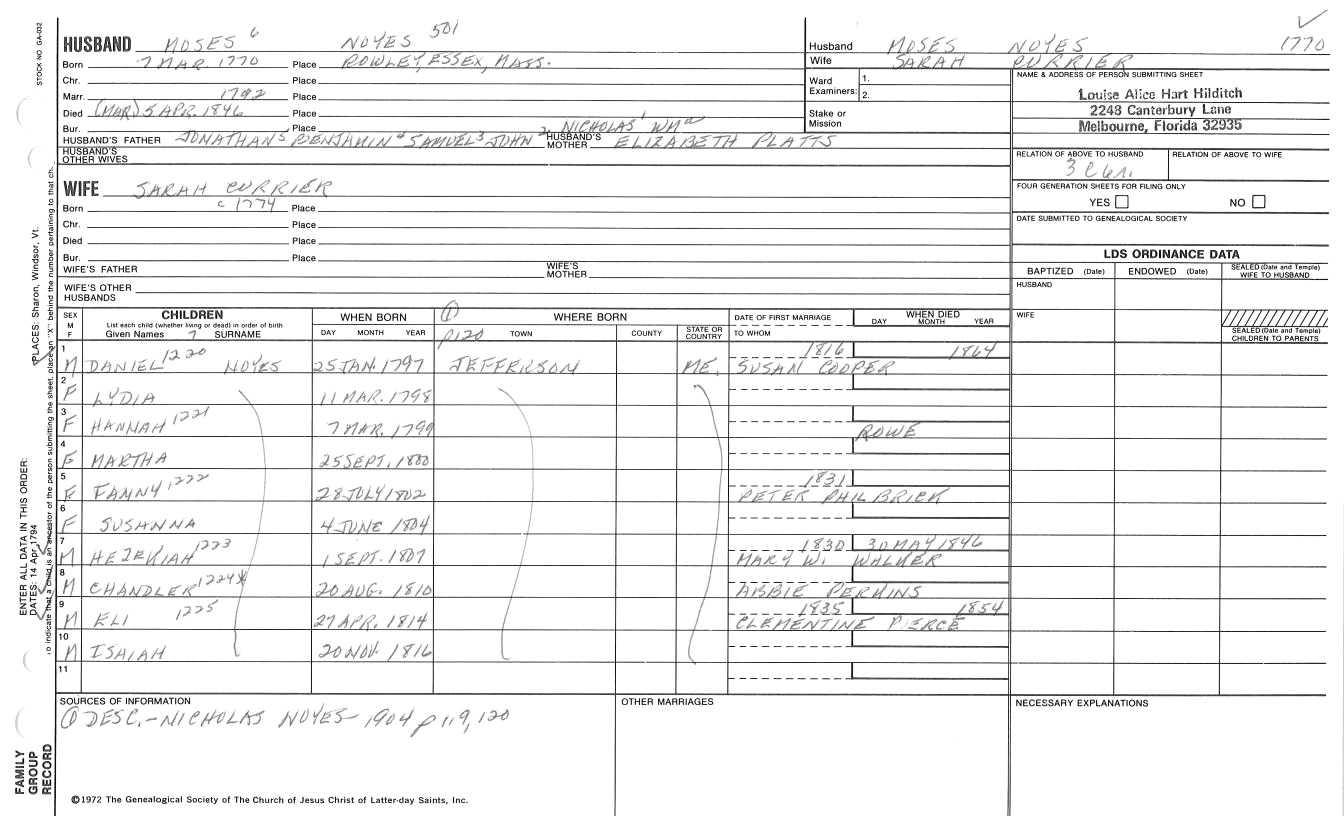 STOCK NO GA-032
HUSBAND MOSES 6 NOYES 501
Born 7 MAR 1770 Place ROWLEY, ESSEX, MASS.
Chr. Place
Marr. 1792 Place
Died (MAR) 5 APR. 1846 Place
Bur. Place
HUSBAND'S FATHER JONATHAN 5 BENJAMIN 4 SAMUEL 3 JOHN 2 NICHOLAS 1 WM a HUSBAND'S MOTHER ELIZABETH PLATTS
HUSBAND'S OTHER WIVES
WIFE SARAH CURRIER
Born c 1774 Place
Chr. Place
Died Place
Bur. Place
WIFE'S FATHER WIFE'S MOTHER
WIFE'S OTHER HUSBANDS
Husband MOSES NOYES 1770
Wife SARAH CURRIER
Ward Examiners: 1. 2.
Stake or Mission
NAME & ADDRESS OF PERSON SUBMITTING SHEET
Louise Alice Hart Hilditch
2248 Canterbury Lane
Melbourne, Florida 32935
RELATION OF ABOVE TO HUSBAND RELATION OF ABOVE TO WIFE
3 C 6n.
FOUR GENERATION SHEETS FOR FILING ONLY
YES NO
DATE SUBMITTED TO GENEALOGICAL SOCIETY
LDS ORDINANCE DATA
BAPTIZED (Date) ENDOWED (Date) SEALED (Date and Temple) WIFE TO HUSBAND
HUSBAND
WIFE
SEALED (Date and Temple) CHILDREN TO PARENTS
SEX M F CHILDREN WHEN BORN ① WHERE BORN DATE OF FIRST MARRIAGE WHEN DIED
List each child (whether living or dead) in order of birth
Given Names 7 SURNAME DAY MONTH YEAR p120 TOWN COUNTY STATE OR COUNTRY TO WHOM DAY MONTH YEAR
1 1816 1864
M DANIEL 1220 NOYES 25 JAN. 1797 JEFFERSON ME. SUSAN COOPER
2
F LYDIA 11 MAR. 1798
3
F HANNAH 1221 7 MAR. 1799 ROWE
4
F MARTHA 25 SEPT. 1800
5 1831
F FANNY 1222 28 JULY 1802 PETER PHILBRICK
6
F SUSANNA 4 JUNE 1804
7 1830 30 MAY 1846
M HEZEKIAH 1223 1 SEPT. 1807 MARY W. WALKER
8
M CHANDLER 1224 20 AUG. 1810 ABBIE PERKINS
9 1835 1854
M ELI 1225 27 APR. 1814 CLEMENTINE PIERCE
10
M ISAIAH 20 NOV. 1816
11
SOURCES OF INFORMATION OTHER MARRIAGES NECESSARY EXPLANATIONS
① DESC.-NICHOLAS NOYES- 1904 p 119, 120
©1972 The Genealogical Society of The Church of Jesus Christ of Latter-day Saints, Inc.
FAMILY GROUP RECORD
ENTER ALL DATA IN THIS ORDER:
DATES: 14 Apr 1794 PLACES: Sharon, Windsor, Vt.
To indicate that a child is an ancestor of the person submitting the sheet, place an "X" behind the number pertaining to that ch.